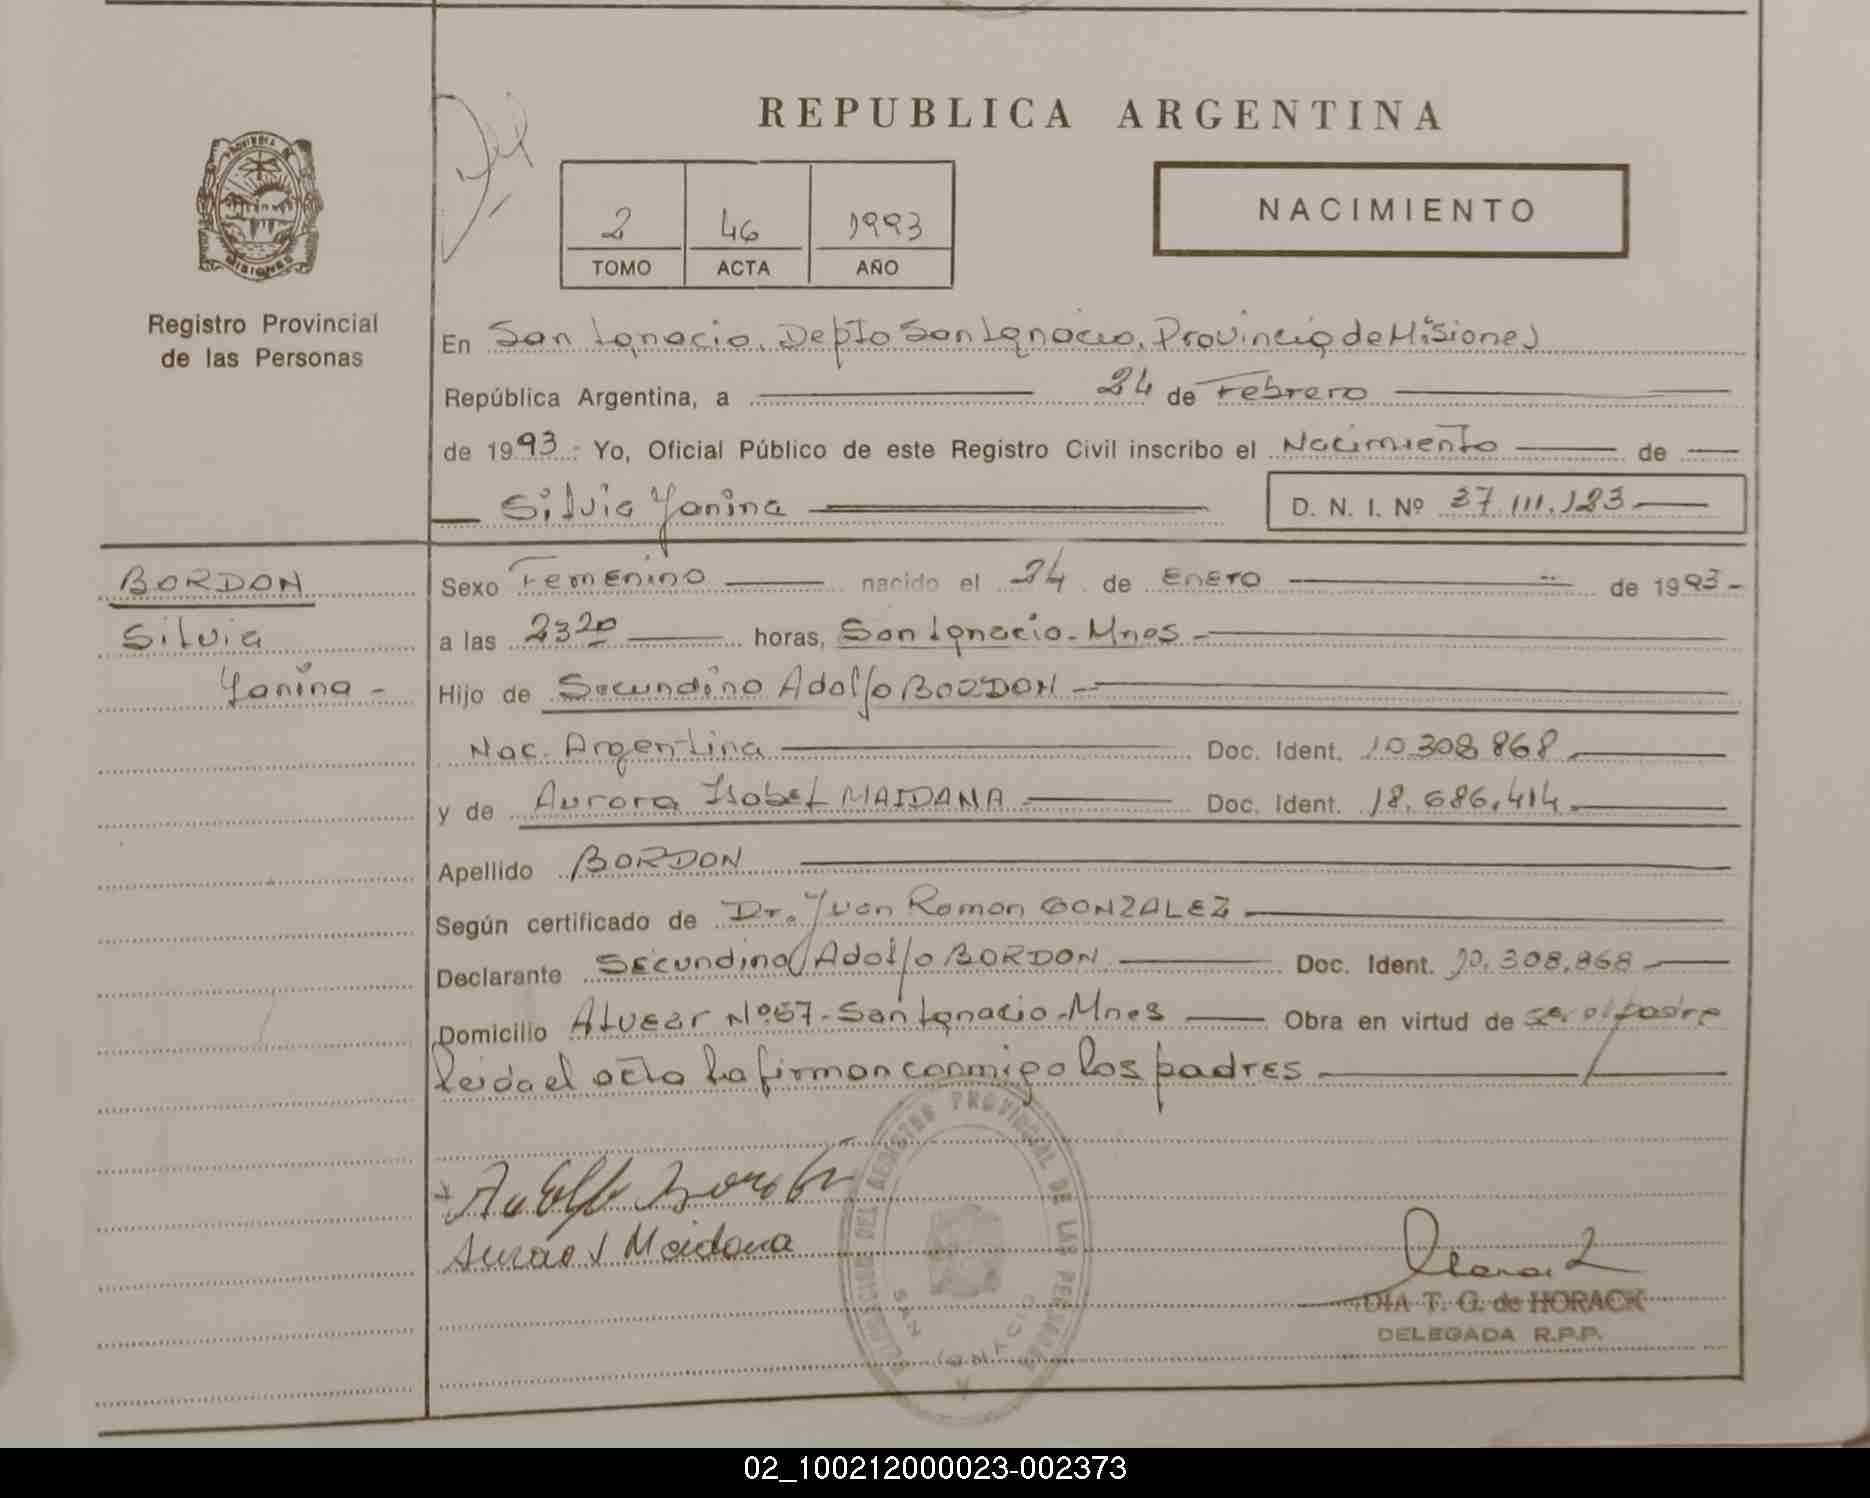 REPUBLICA ARGENTINA
PROVINCIA DE
MISIONES
Registro Provincial
de las Personas
2 46 1993
TOMO ACTA AÑO
NACIMIENTO
En San Ignacio. Depto San Ignacio, Provincia de Misiones
República Argentina, a 24 de Febrero
de 1993. Yo, Oficial Público de este Registro Civil inscribo el Nacimiento de
Silvia Yanina D. N. I. Nº 37.111.123
BORDON
Silvia
Yanina -
Sexo Femenino nacido el 24 de Enero de 1993-
a las 2320 horas, San Ignacio - Mnes -
Hijo de Secundino Adolfo BORDON -
Nac. Argentina Doc. Ident. 10.308.868
y de Aurora Isabel MAIDANA Doc. Ident. 18.686.414
Apellido BORDON
Según certificado de Dr. Juan Ramon GONZALEZ
Declarante Secundino Adolfo BORDON Doc. Ident. 10.308.868
Domicilio Alvear Nº 57 - San Ignacio - Mnes Obra en virtud de ser el padre
leida el acta la firman conmigo los padres
DEL REGISTRO PROVINCIAL DE LAS PERSONAS
SAN IGNACIO
Aurora I Maidana
DIA T. G. de HORACK
DELEGADA R.P.P.
02_100212000023-002373